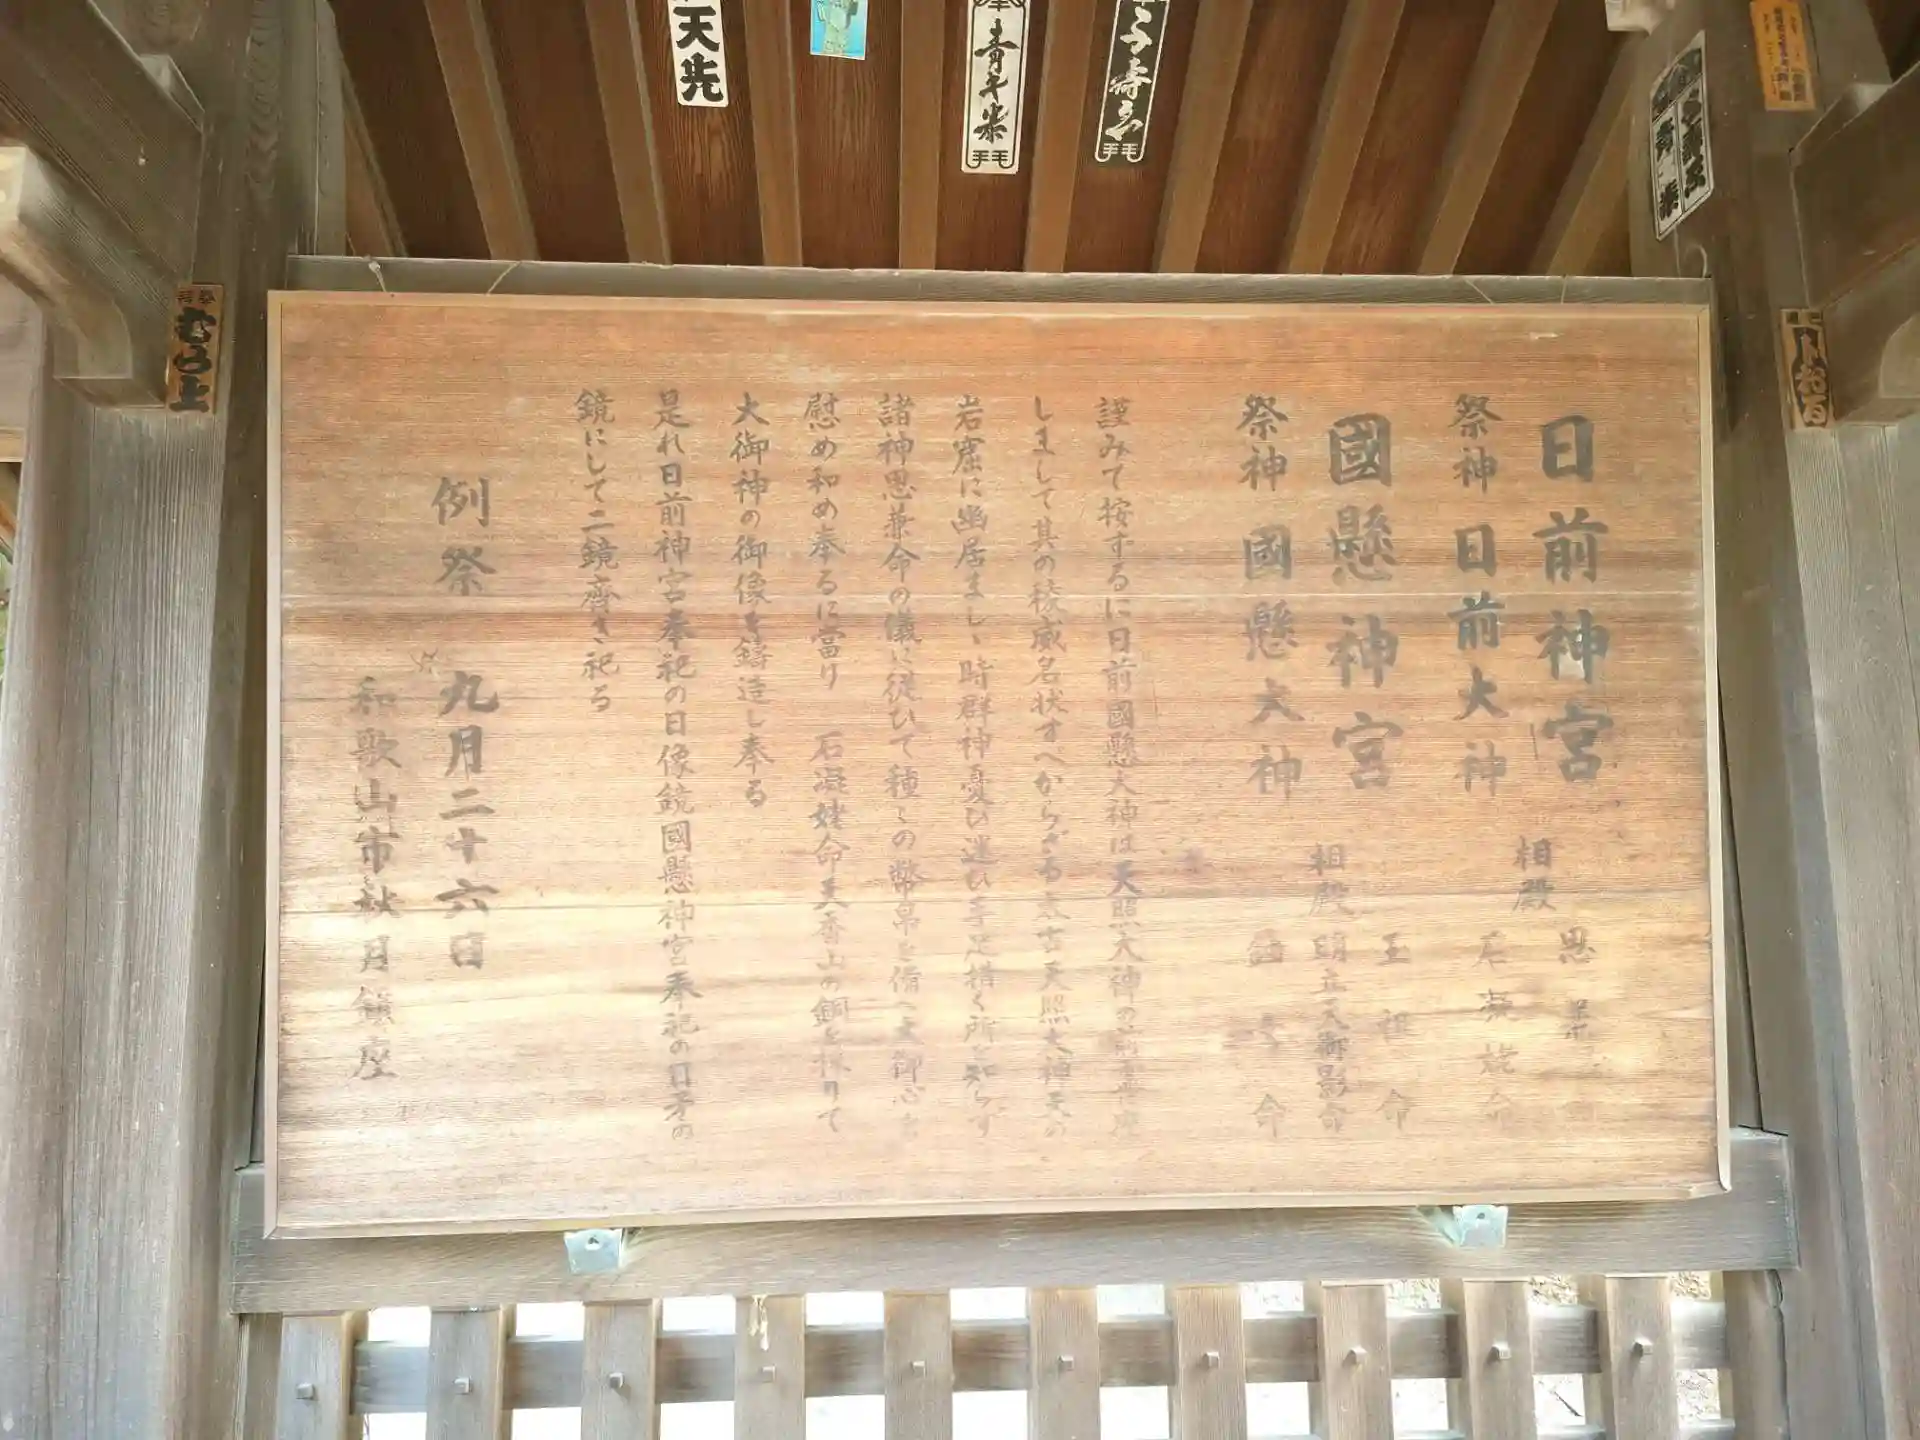 日前神宮
相殿
思兼
石凝姥命
祭神 日前大神
國懸神宮
相殿
玉祖命
明立天御影命
鈿女命
祭神 國懸大神
謹みて按ずるに日前國懸大神は天照大神の前
しまして其の稜威名状すべからざる太古天照大神天の
岩窟に幽居ましゝ時群神憂ひ迷ひ手足措く所を知らず
諸神思兼命の儀に従ひて種々の幣帛を備へ大御心を
慰め和め奉るに當り 石凝姥命天香山の銅を採りて
大御神の御像を鋳造し奉る
是れ日前神宮奉祀の日像鏡國懸神宮奉祀の日矛の
鏡にして二鏡齊き祀る
例祭 九月二十六日
和歌山市秋月鎮座
天先
むら上